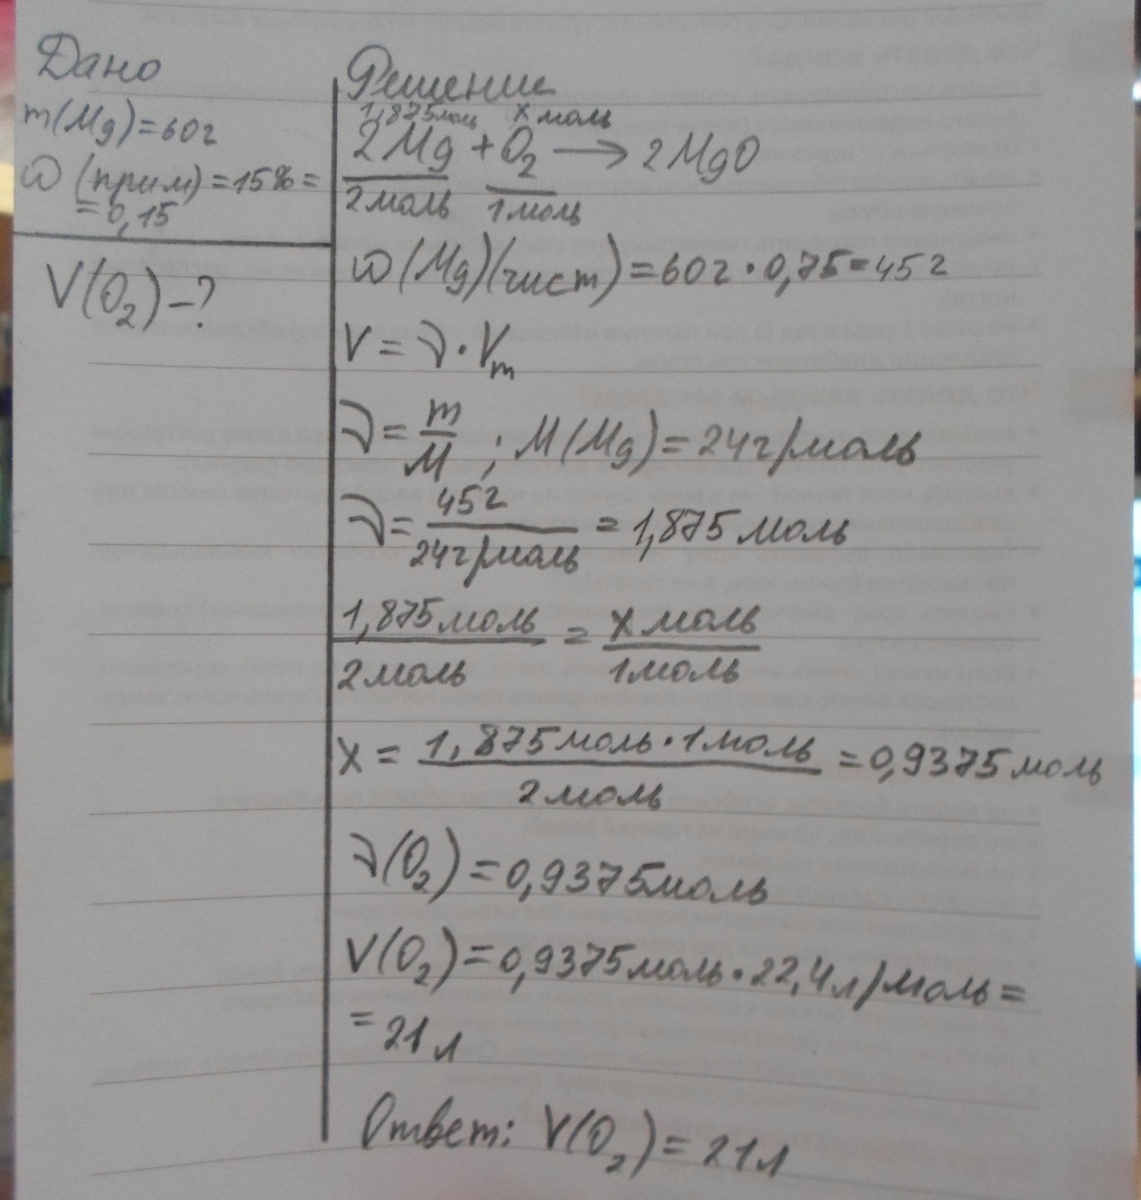 Дано
m(Mg)=60г
ω(прим)=15%=
=0,15
V(O₂)-?
Решение
1,875моль x моль
2Mg + O₂ → 2MgO
2моль 1моль
ω(Mg)(чист)=60г·0,75=45г
V = ν·Vm
ν = m/M ; M(Mg)=24г/моль
ν = 45г/24г/моль = 1,875моль
1,875моль/2моль = x моль/1моль
x = 1,875моль·1моль/2моль = 0,9375моль
ν(O₂)=0,9375моль
V(O₂)=0,9375моль·22,4л/моль=
=21л
Ответ: V(O₂)=21л